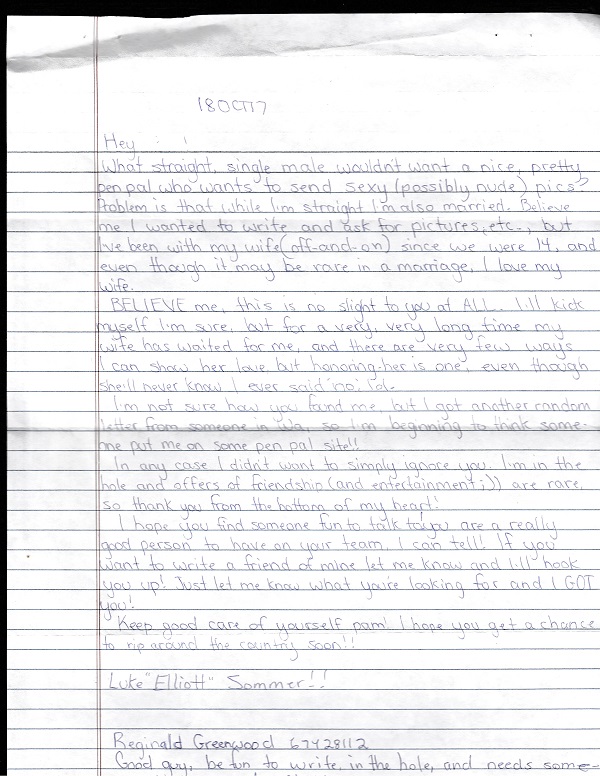 18OCT17
Hey !
What straight, single male wouldn't want a nice, pretty
pen pal who wants to send sexy (possibly nude) pics?
Problem is that while I'm straight I'm also married. Believe
me I wanted to write and ask for pictures, etc., but
I've been with my wife (off-and-on) since we were 14, and
even though it may be rare in a marriage, I love my
wife.
BELIEVE me, this is no slight to you at ALL.. I'll kick
myself I'm sure, but for a very, very long time my
wife has waited for me, and there are very few ways
I can show her love, but honoring her is one, even though
she'll never know I ever said 'no', lol.
I'm not sure how you found me, but I got another random
letter from someone in Wa, so I'm beginning to think some-
one put me on some pen pal site!!
In any case I didn't want to simply ignore you. I'm in the
hole and offers of friendship (and entertainment ;)) are rare,
so thank you from the bottom of my heart!
I hope you find someone fun to talk to, you are a really
good person to have on your team, I can tell! If you
want to write a friend of mine let me know and I'll hook
you up! Just let me know what you're looking for and I GOT
you!
Keep good care of yourself pam! I hope you get a chance
to rip around the country soon!!
Luke "Elliott" Sommer!!
Reginald Greenwood 67428112
Good guy, be fun to write, in the hole, and needs some-